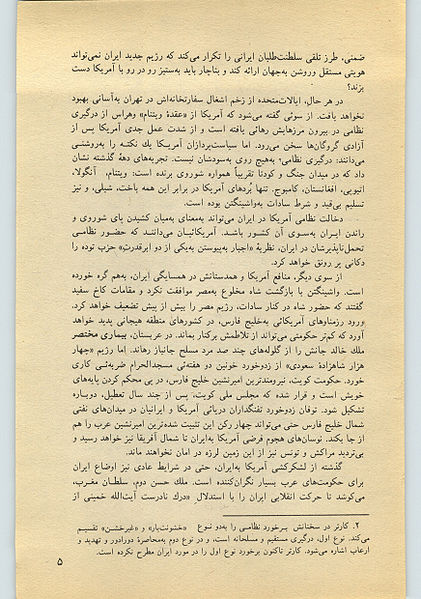 ضمنی، طرز تلقی سلطنت‌طلبان ایرانی را تکرار می‌کند که رژیم جدید ایران نمی‌تواند
هویتی مستقل وروشن به‌جهان ارائه کند و بناچار باید به‌ستیز رو در رو با آمریکا دست
بزند؟
در هر حال، ایالات‌متحده از زخم اشغال سفارتخانه‌اش در تهران به‌آسانی بهبود
نخواهد یافت. از سوئی گفته می‌شود که آمریکا از «عقدهٔ ویتنام» وهراس از درگیری
نظامی در بیرون مرزهایش رهائی یافته است و از شدت عمل جدی آمریکا پس از
آزادی گروگان‌ها سخن می‌رود. اما سیاست‌پردازان آمریـکا یك نکتـه را به‌روشنـی
می‌دانند: درگیری نظامی۲ به‌هیچ روی به‌سودشان نیست. تجربه‌های دههٔ گذشته نشان
داد که در میدان جنگ و کودتا تقریباً همواره شوروی برنده است: ویتنام، آنگولا،
اتیوپی، افغانستان، کامبوج. تنها بُردهای آمریکا در برابر این همه باخت، شیلی، و نیز
تسلیم بی‌قید و شرط سادات به‌واشینگتن بوده است.
دخالت نظامی آمریکا در ایران می‌تواند به‌معنای به‌میان کشیدن پای شوروی و
راندن ایـران به‌سـوی آن کشـور باشـد. آمریکائیـان می‌داننـد که حضـور نظامـی
تحمل‌ناپذیرشان در ایران، نظریهٔ «اجبار به‌پیوستن به‌یکی از دو ابرقدرتِ» حزب توده را
دکانی پر رونق خواهد کرد.
از سوی دیگر، منافع آمریکا و همدستانش در همسایگی ایران، به‌هم گره خورده
است. واشینگتن با بازگشت شاه مخلوع به‌مصر موافقت نکرد و مقامات کاخ سفید
گفتند که حضور شاه در کنار سادات، رژیم مصر را بیش از پیش تضعیف خواهد کرد.
ورود رزمناوهای آمریکائی به‌خلیج فارس، در کشورهای منطقه هیجانی پدید خواهد
آورد که کم‌تر حکومتی می‌تواند از تلاطمش برکنار بماند. در عربستان، بیماری مختصر
ملك خالد جانش را از گلوله‌های چند صد مرد مسلح جانیاز رهاند. اما رژیم «چهار
هزار شاهزادهٔ سعودی» از زدوخورد خونین دو هفته‌ئی مسجدالحرام ضربه‌ئی کاری
خورد. حکومت کویت، نیرومندترین امیرنشین خلیج فارس، در پی محکم کردن پایه‌های
خویش است و قرار شده که مجلس ملی کویت، پس از چند سال تعطیل، دوبـاره
تشکیل شود. توفان زدوخورد تفنگداران دریائی آمریکا و ایرانیان در میدان‌های نفتی
شمال خلیج فارس حتی می‌تواند چهار رکن این تثبیت شده‌ترین امیرنشین عرب را هم
از جا بکند. نوسان‌های هجوم فرضی آمریکا به‌ایران تا شمال آفریقا نیز خواهد رسید و
بی‌تردید مراکش و تونس نیز از این زمین لرزه در امان نخواهند ماند.
گذشته از لشکرکشی آمریکا به‌ایران، حتی در شرایط عادی نیز اوضاع ایران
برای حکومت‌های عرب بسیار نگران‌کننده است. ملك حسن دوم، سلطـان مغـرب،
می‌کوشد تا حرکت انقلابی ایران را با استدلال «درك نادرست آیت‌الله خمینی از
۲. کارتر در سخنانش بـرخورد نظامـی را به‌دو نـوع «خشونت‌بار» و «غیرخشـن» تقسیـم
می‌کند. نوع اول، درگیری مستقیم و مسلحانه است، و در نوع دوم به‌محاصرهٔ دورادور و تهدید و
ارعاب اشاره می‌شود. کارتر تاکنون برخورد نوع اول را در مورد ایران مطرح نکرده است.
۵